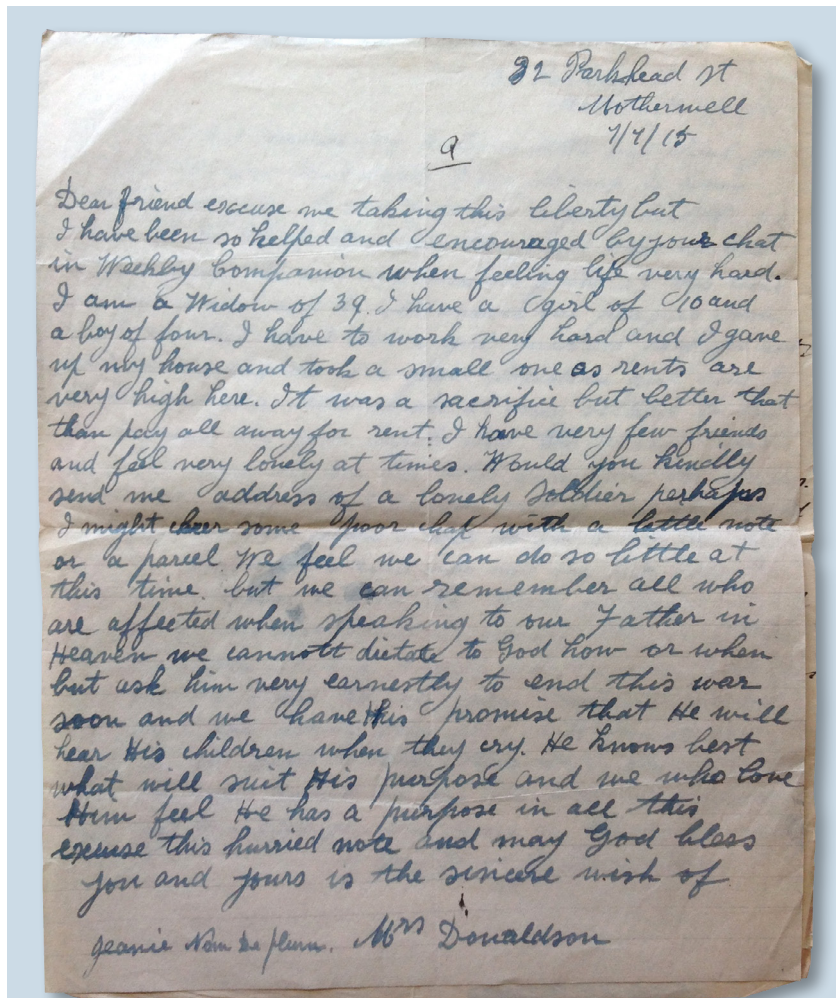 32 Parkhead st
Motherwell
7/7/15
9
Dear friend excuse me taking this liberty but
I have been so helped and encouraged by your chat
in Weekly Companion when feeling life very hard.
I am a Widow of 39. I have a girl of 10 and
a boy of four. I have to work very hard and I gave
up my house and took a small one as rents are
very high here. It was a sacrifice but better that
than pay all away for rent. I have very few friends
and feel very lonely at times. Would you kindly
send me address of a lonely Soldier perhaps
I might cheer some poor chap with a little note
or a parcel We feel we can do so little at
this time. but we can remember all who
are affected when speaking to our Father in
Heaven we cannott dictate to God how or when
but ask him very earnestly to end this war
soon and we have His promise that He will
hear His children when they cry. He knows best
what will suit His purpose and we who love
Him feel He has a purpose in all this
excuse this hurried note and may God bless
you and yours is the sincere wish of
Mrs Donaldson
Jeanie Nom De plum.